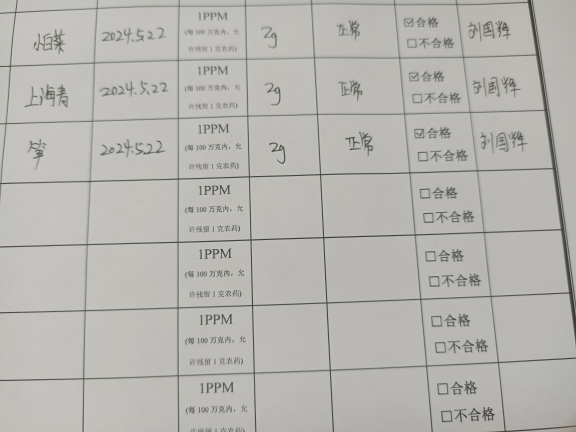 小白菜 2024.5.22 1PPM (每 100 万克内，允许残留 1 克农药) 2g 正常 ☑合格 □不合格 刘国辉
上海青 2024.5.22 1PPM (每 100 万克内，允许残留 1 克农药) 2g 正常 ☑合格 □不合格 刘国辉
笋 2024.5.22 1PPM (每 100 万克内，允许残留 1 克农药) 2g 正常 ☑合格 □不合格 刘国辉
1PPM (每 100 万克内，允许残留 1 克农药) □合格 □不合格
1PPM (每 100 万克内，允许残留 1 克农药) □合格 □不合格
1PPM (每 100 万克内，允许残留 1 克农药) □合格 □不合格
1PPM (每 100 万克内，允许残留 1 克农药) □合格 □不合格